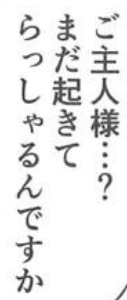 ご主人様…?
まだ起きて
らっしゃるんですか